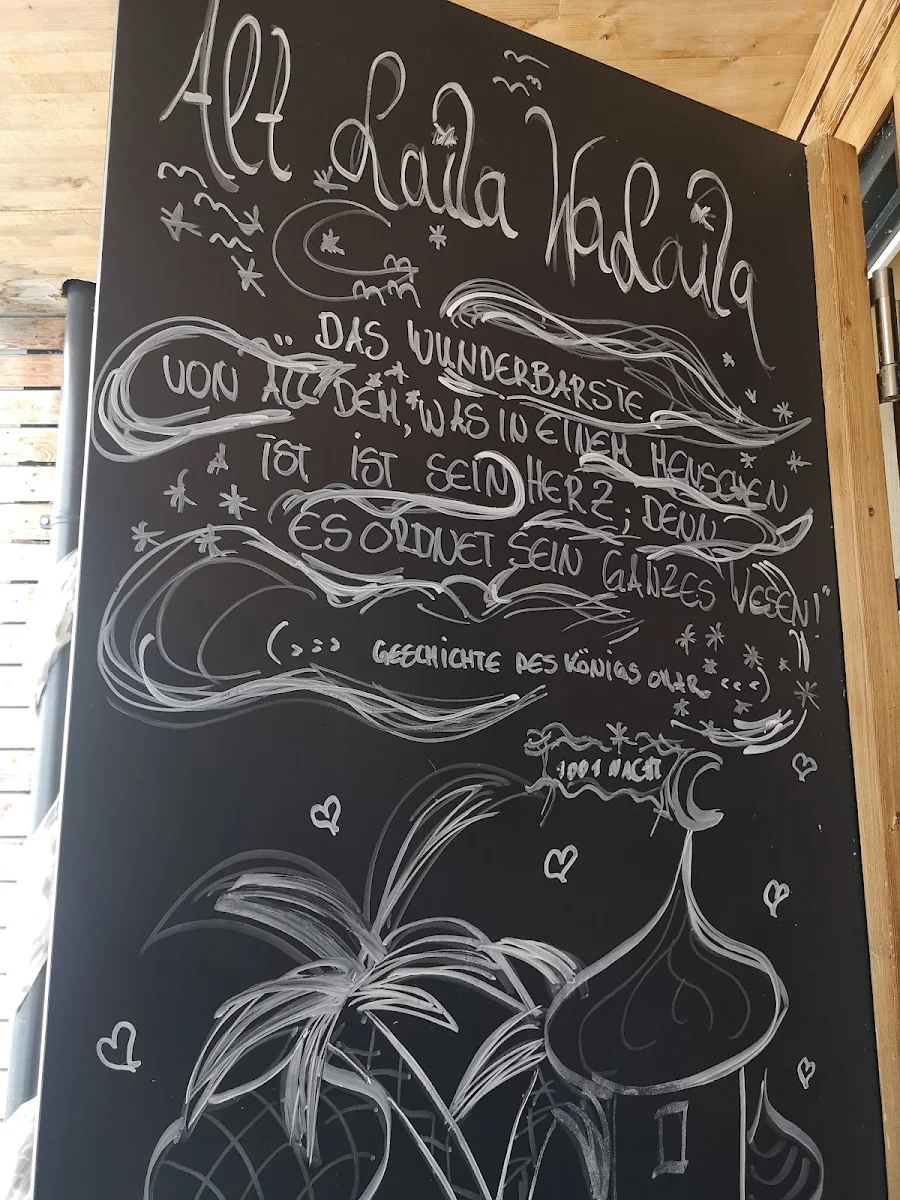 Alf Laila WaLaila
„DAS WUNDERBARSTE
VON ALL DEM, WAS IN EINEM MENSCHEN
IST IST SEIN HERZ; DENN
ES ORDNET SEIN GANZES WESEN!"
(>>> GESCHICHTE DES KÖNIGS OMAR <<<)
1001 NACHT